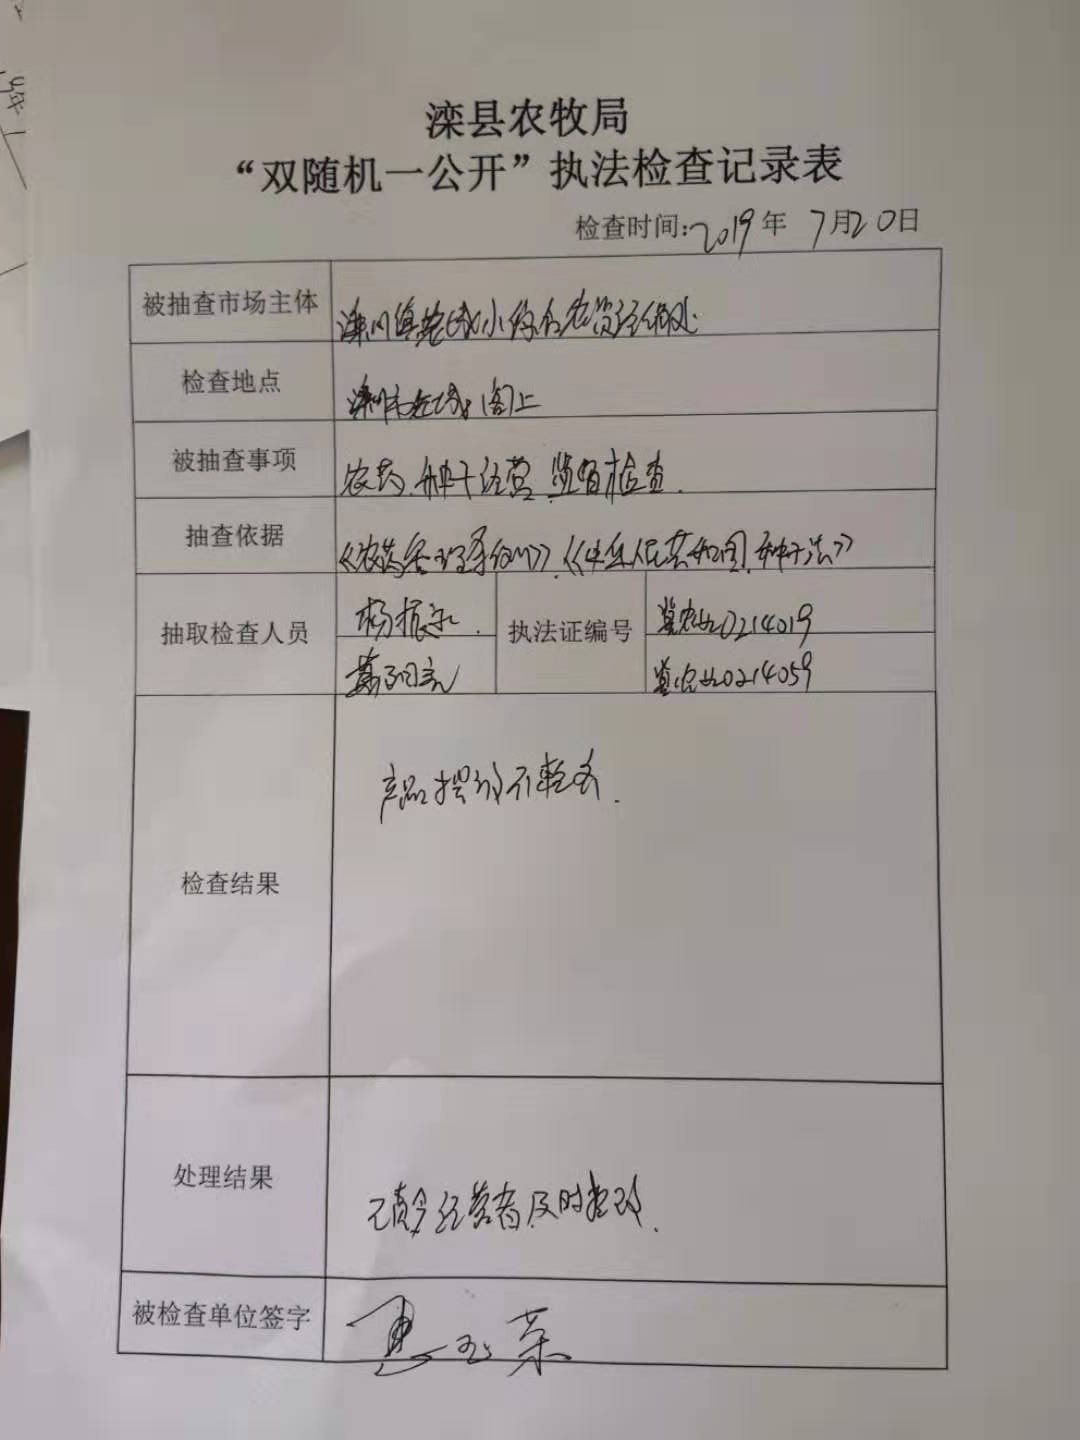 滦县农牧局
“双随机一公开”执法检查记录表
检查时间:2019年 7月20日
被抽查市场主体
检查地点
被抽查事项 农药、种子经营 监督检查.
抽查依据 《农药管理条例》、《中华人民共和国种子法》
抽取检查人员 杨振 执法证编号 冀农 0214019
冀农 0214059
检查结果 产品摆放不整齐.
处理结果 已责令经营者及时整改.
被检查单位签字 惠玉荣